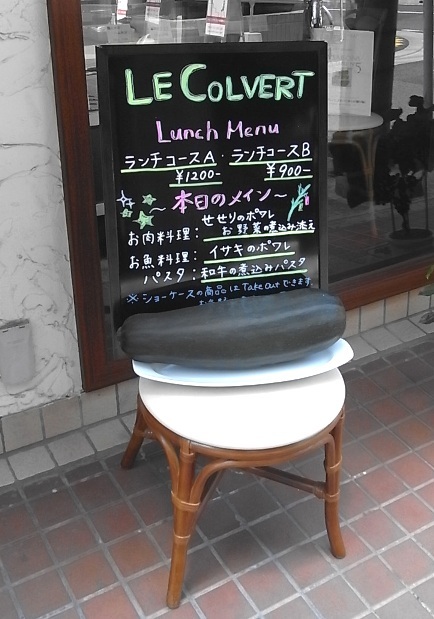 LE COLVERT
Lunch Menu
ランチコースA・ランチコースB
¥1200- ¥900-
本日のメイン〜
お肉料理：せせりのポワレ
お野菜の煮込み添え
お魚料理：イサキのポワレ
パスタ：和牛の煮込みパスタ
※ショーケースの商品はTake Outできます